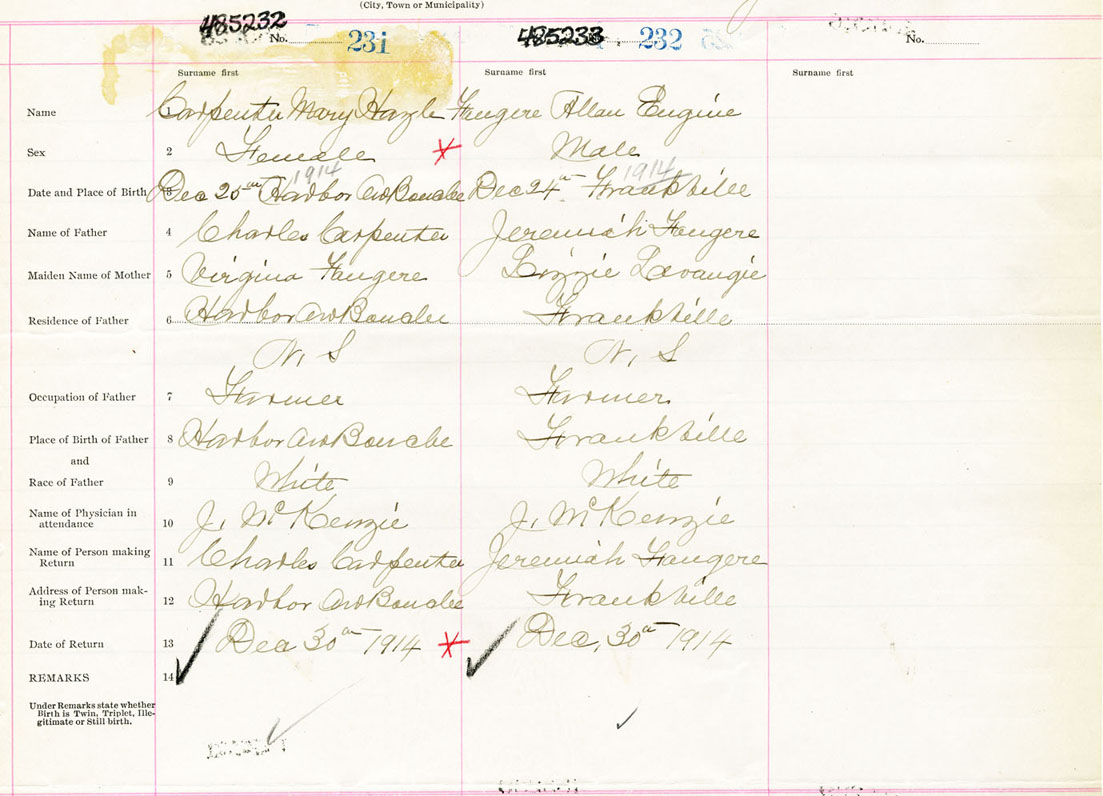 (City, Town or Municipality)
485232 No. 231 485233 232 No.
Surname first Surname first Surname first
Name 1 Carpenter Mary Hazle Faugere Allan Eugine
Sex 2 Female Male
1914 1914
Date and Place of Birth 3 Dec 25th Harbor Au Bouche Dec 24th Frankville
Name of Father 4 Charles Carpenter Jeremiah Faugere
Maiden Name of Mother 5 Virgina Faugere Lizzie Levangie
Residence of Father 6 Harbor Au Bouche Frankville
N, S N, S
Occupation of Father 7 Farmer Farmer
Place of Birth of Father 8 Harbor Au Bouche Frankville
and
Race of Father 9 White White
Name of Physician in
attendance 10 J, McKenzie J, McKenzie
Name of Person making
Return 11 Charles Carpenter Jeremiah Faugere
Address of Person mak-
ing Return 12 Harbor Au Bouche Frankville
Date of Return 13 Dec 30th 1914 Dec, 30th 1914
REMARKS 14
Under Remarks state whether
Birth is Twin, Triplet, Ille-
gitimate or Still birth.